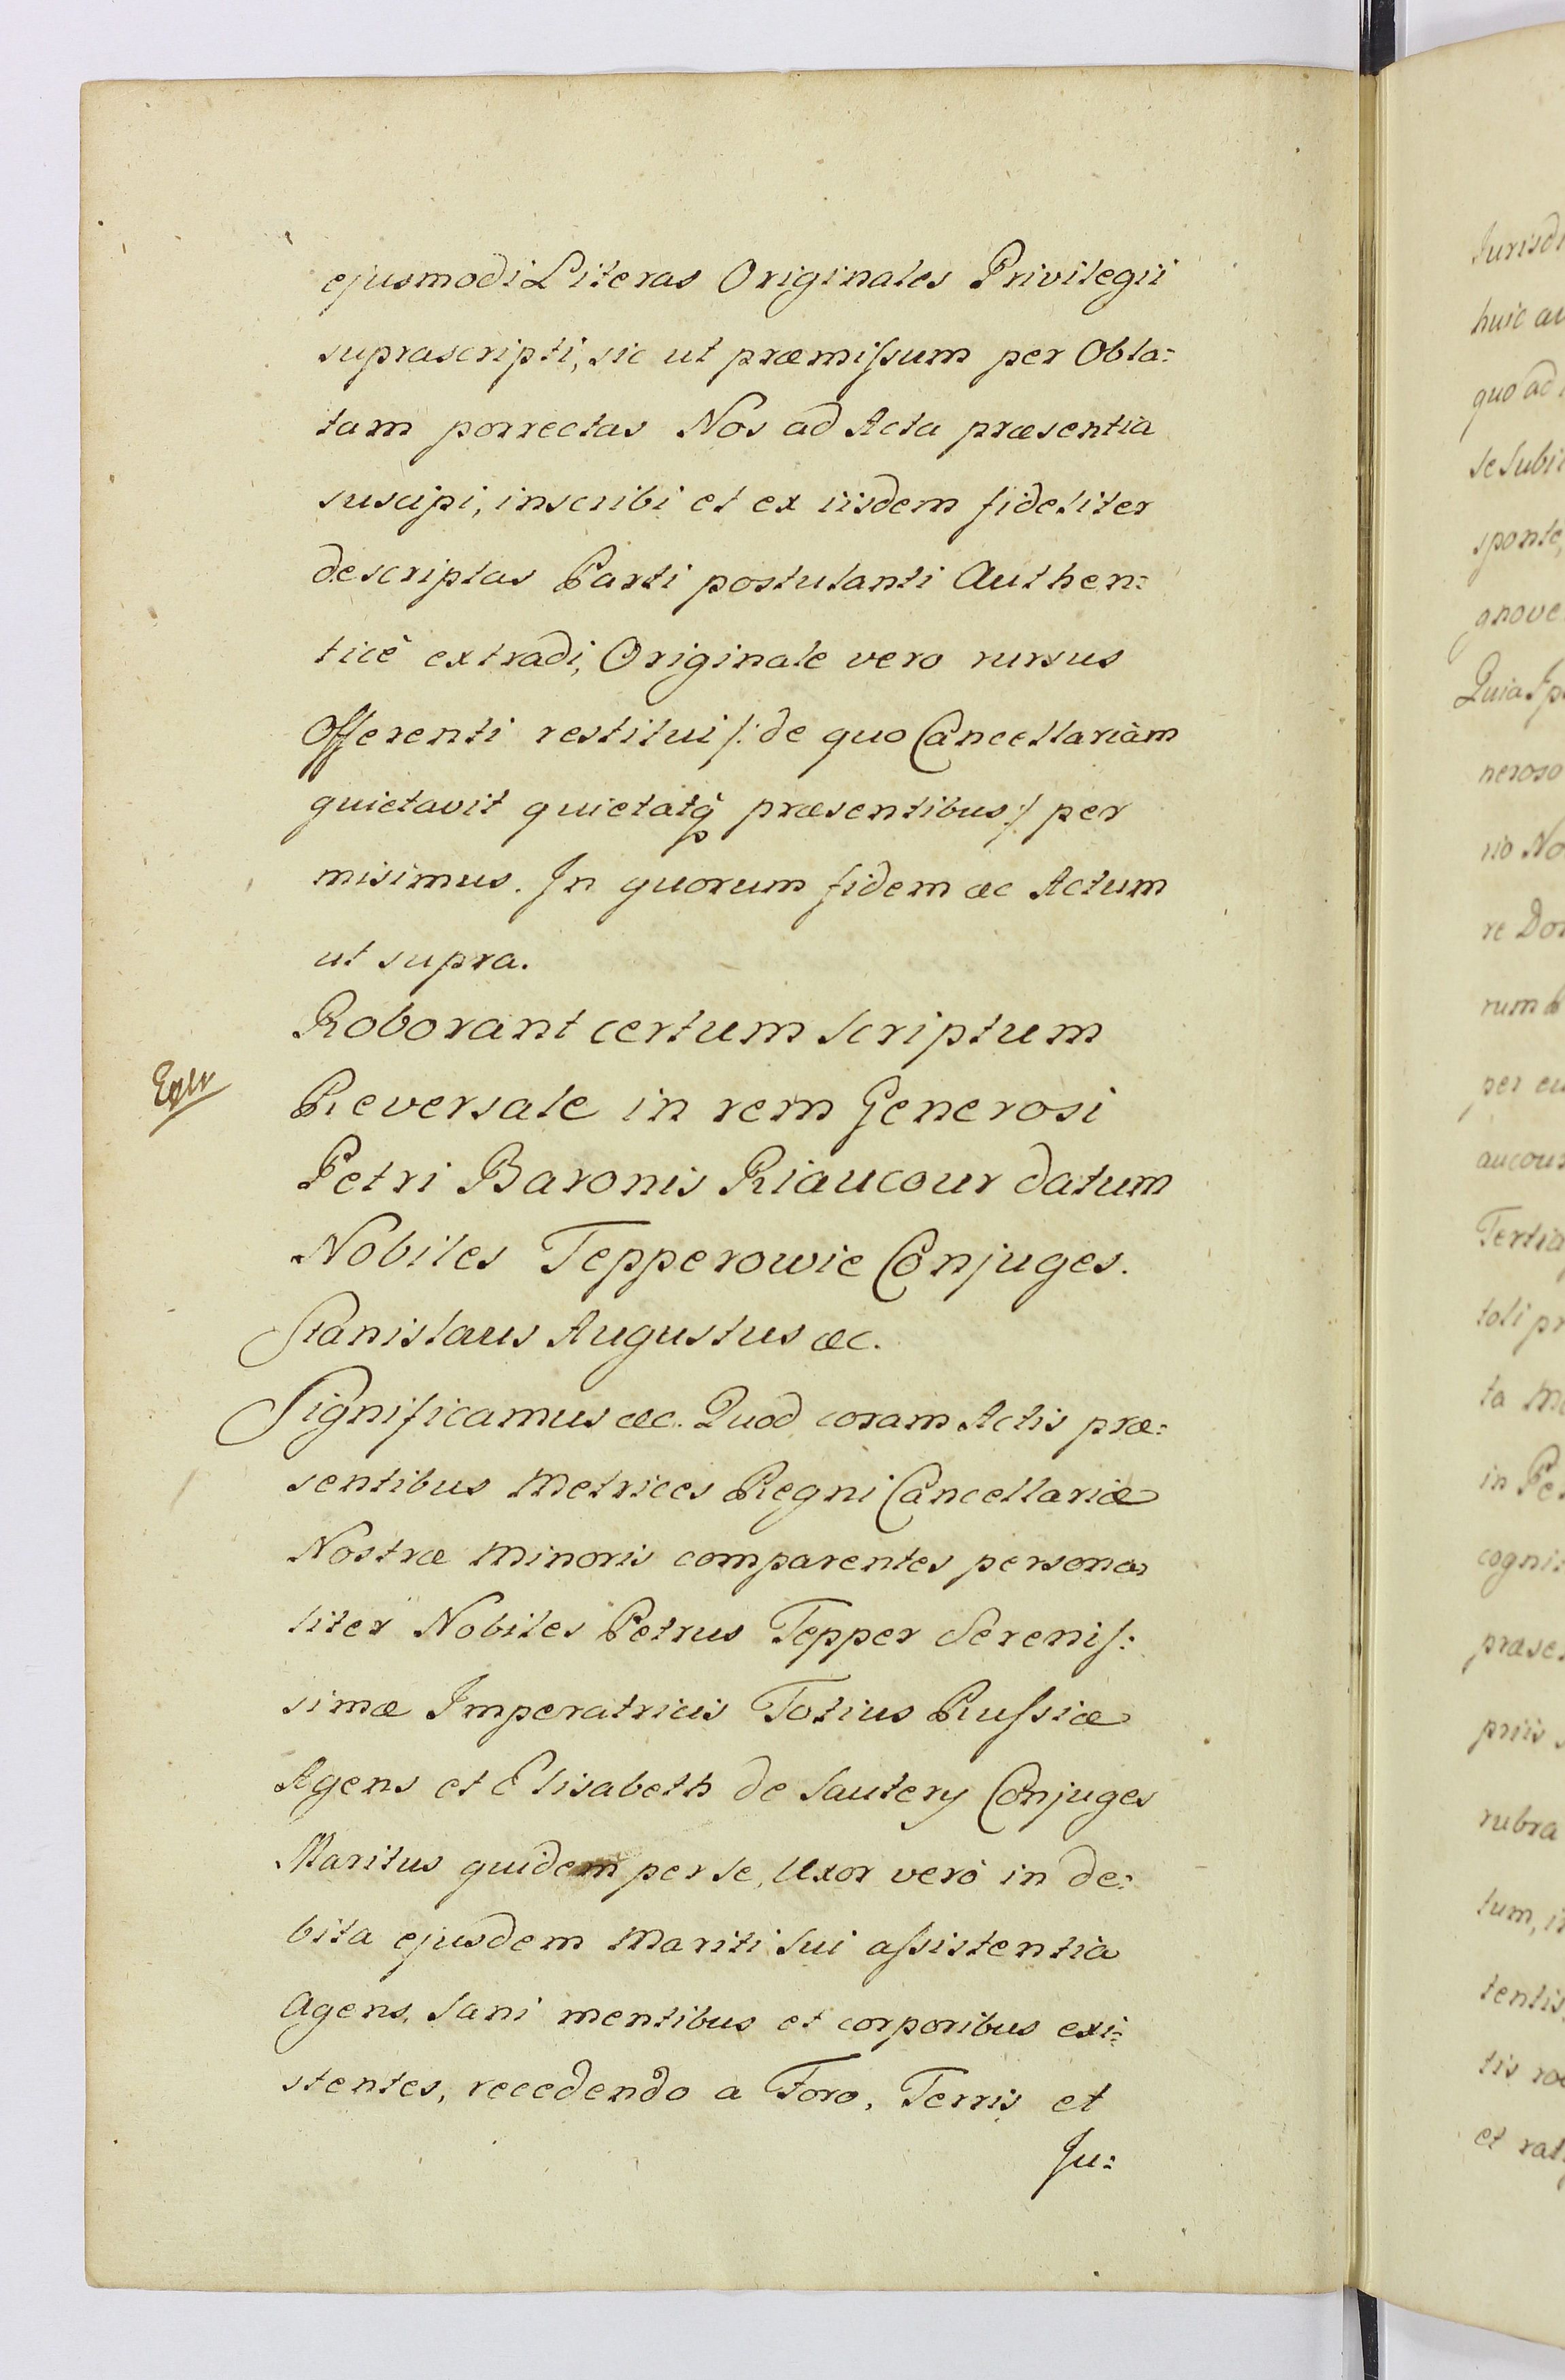 ejusmodi Literas Originales Privilegii
suprascripti, sic ut præmiſsum per Obla:
tam porrectas Nos ad Acta præsentia
suscipi, inscribi et ex iisdem fideliter
descriptas Parti postulanti Authen:
ticè extradi, Originale vero rursus
Offerenti restitui /: de quo Cancellariam
quietavit quietatq̃ præsentibus :/ per
misimus. In quorum fidem &c Actum
ut supra.
Roborant certum Scriptum
Reversale in rem Generosi
Petri Baronis Riaucour datum
Nobiles Tepperowie Conjuges.
Stanislaus Augustus &c.
Significamus &c. Quod coram Actis præ:
sentibus Metrices Regni Cancellariæ
Nostræ Minoris comparentes persona:
liter Nobiles Petrus Tepper Sereniſ:
simæ Imperatricis Totius Ruſsiæ
Agens et Elisabeth de Sautery Conjuges
Maritus quidem per se, Uxor verò in de:
bita ejusdem Mariti sui aſsistentia
Agens, Sani mentibus et corporibus exi:
stentes, recedendo a Foro, Terris et
Ju:
Jurisdi
huic au
quo ad
se Subi
sponte,
gnove
Quia Ip
neroso
rio No
re Do
rum
per eu
aucour
Tertia
toli pr
ta M
in Pe
cogni:
præse
priis
rubra
tum, i
tentis
tis ro
et rat